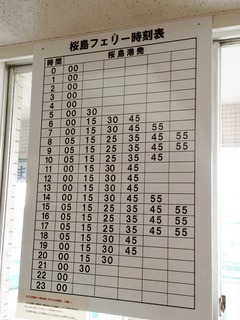 桜島フェリー時刻表
時間 桜島港発
0 00
1 00
2 00
3 00
4 00
5 00 30
6 00 15 30 45
7 00 15 30 45 55
8 05 15 25 35 45 55
9 05 15 25 35 45 55
10 05 15 25 35 45
11 00 15 30 45
12 00 15 30 45
13 00 15 30 45
14 00 15 30 45 55
15 05 15 25 35 45 55
16 05 15 25 35 45 55
17 05 15 25 35 45 55
18 05 15 30 45
19 00 15 30 45
20 00 15 30
21 00 30
22 00
23 00